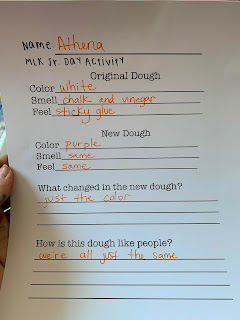 Name Athena
MLK Jr. DAY ACTIVITY
Original Dough
Color white
Smell chalk and vinegar
Feel sticky glue
New Dough
Color purple
Smell same
Feel same
What changed in the new dough?
just the color
How is this dough like people?
we're all just the same